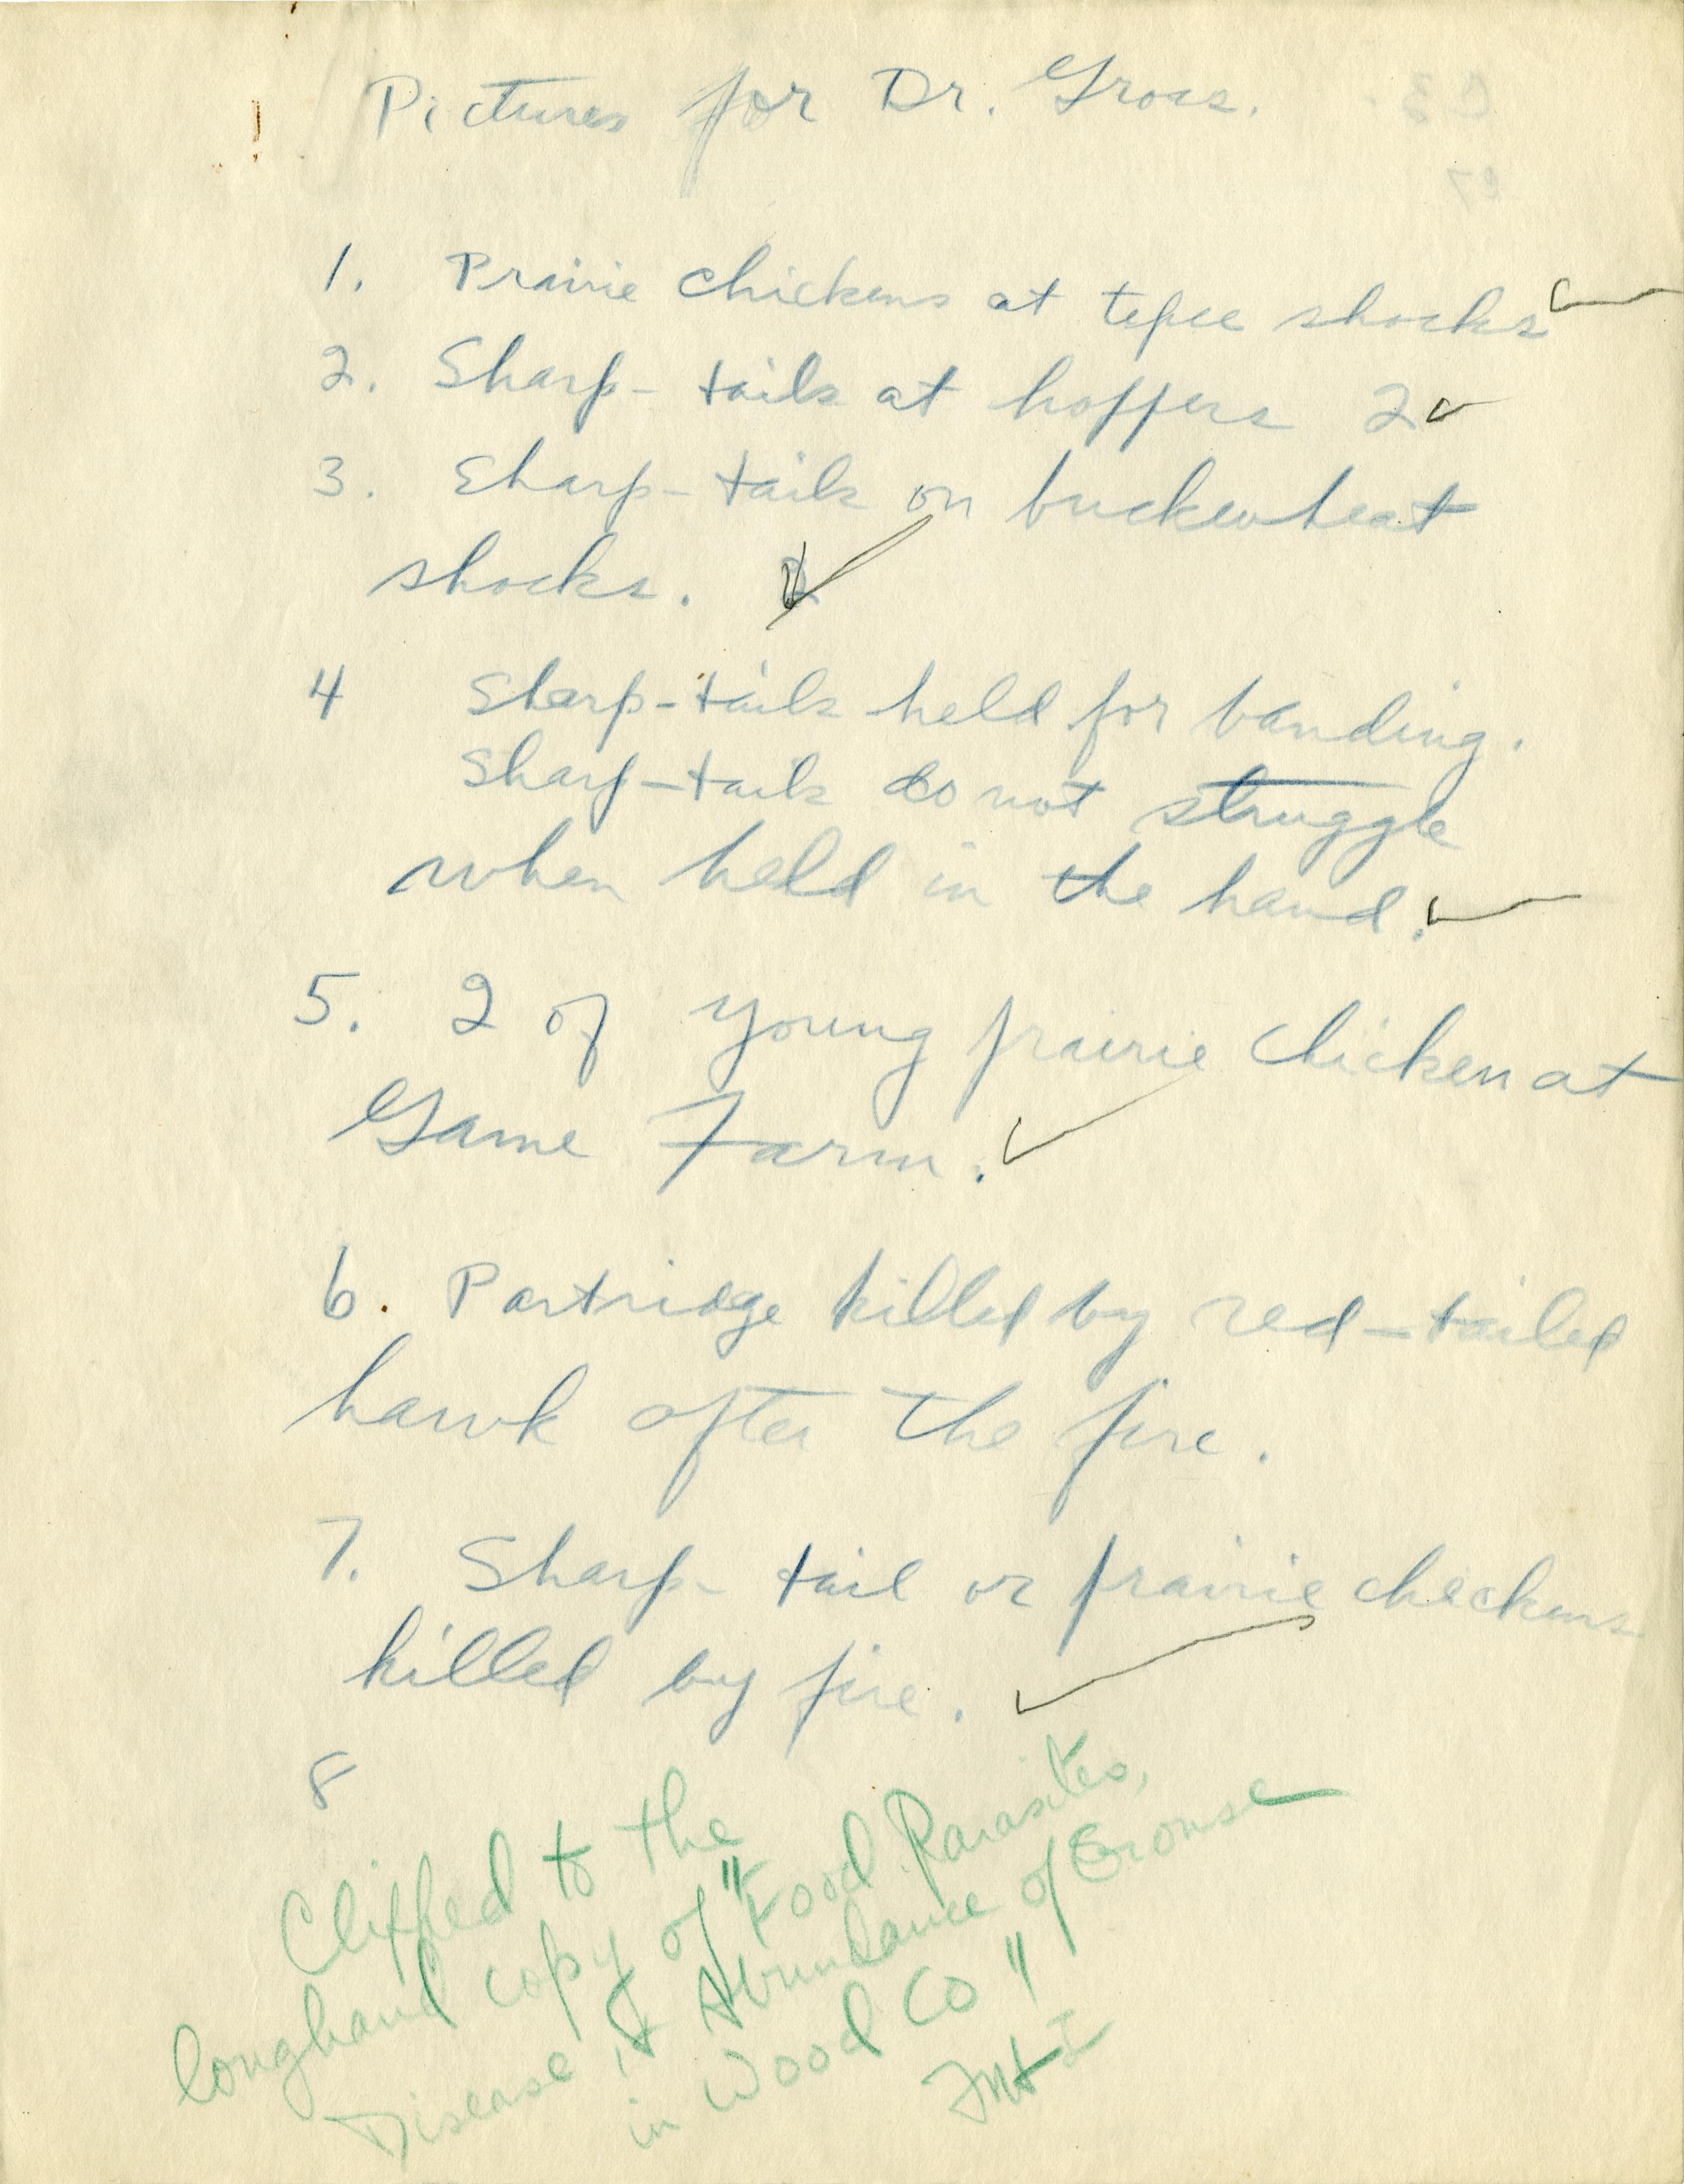 Pictures for Dr. Gross.
1. Prairie Chickens at tepee shocks
2. Sharp-tails at hoppers 2
3. Sharp-tails on buckwheat
shocks.
4 Sharp-tails held for banding.
Sharp-tails do not struggle
when held in the hand.
5. 2 of young prairie chicken at
Game Farm.
6. Partridge killed by red-tailed
hawk after the fire.
7. Sharp-tail or prairie checkens
killed by fire.
8
Clipped to the
longhand copy of "Food Parasites,
Disease, & Abundance of Grouse
in Wood Co"